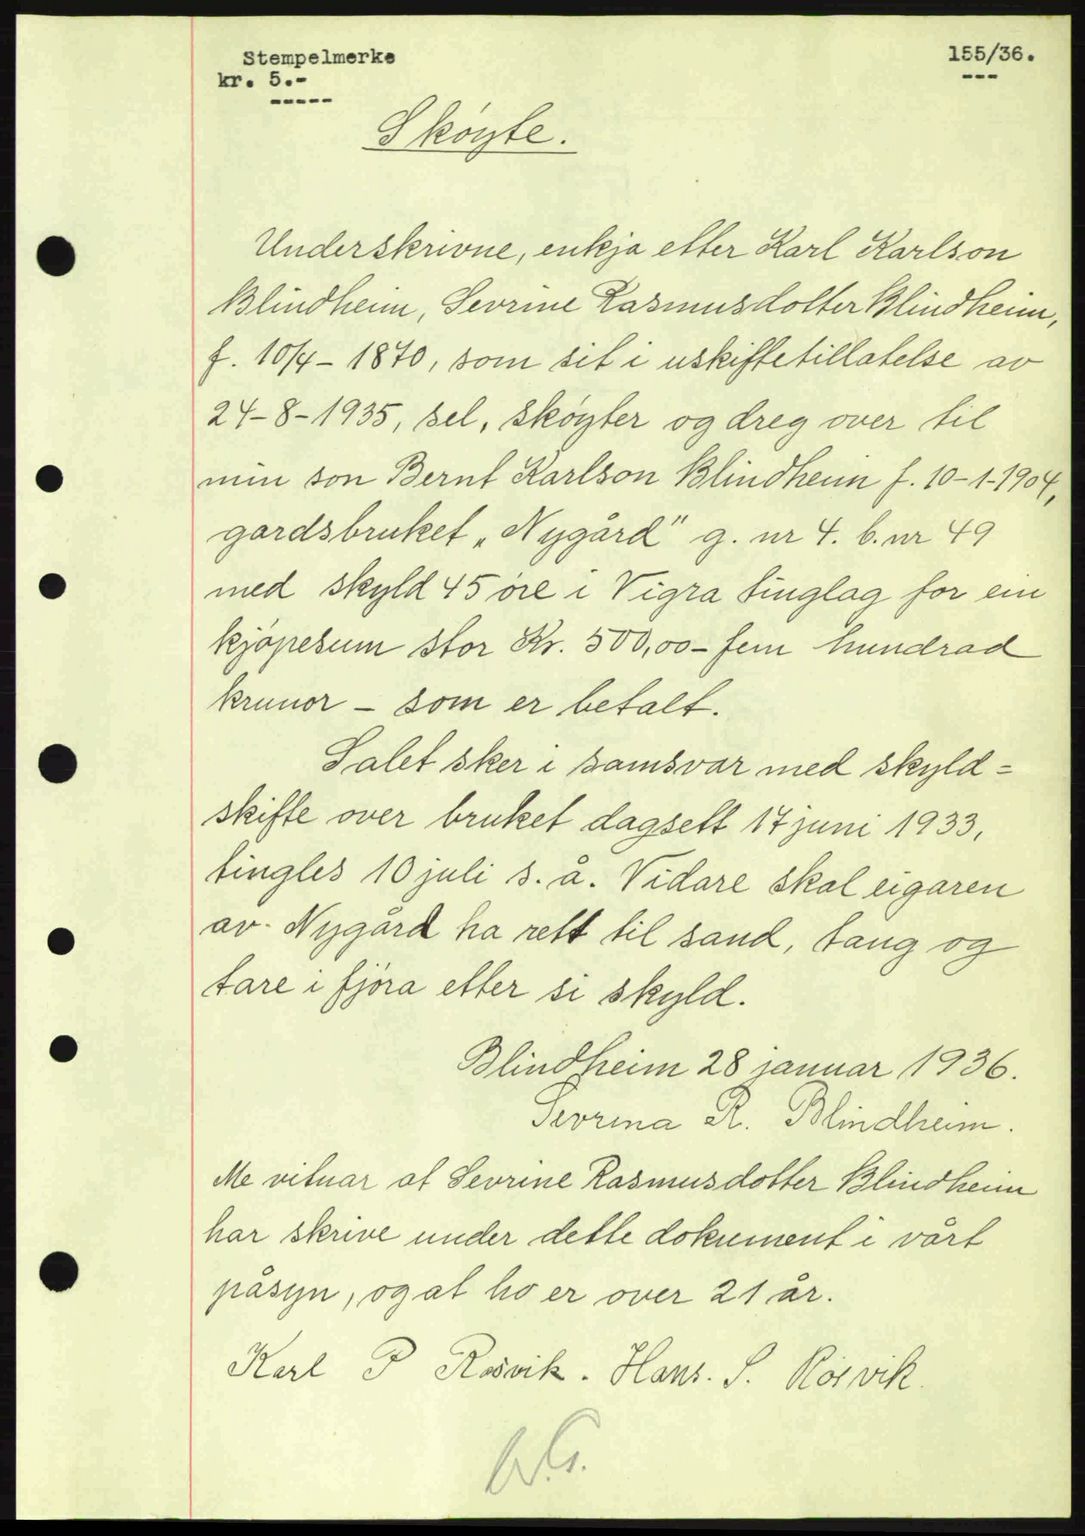 Stempelmerke
kr. 5.-
-----
155/36.
---
Skøyte.
Underskrivne, enkja etter Karl Karlson
Blindheim, Sevrine Rasmusdotter Blindheim,
f. 10/4 - 1870, som sit i uskiftetillatelse av
24-8-1935, sel, skøyter og dreg over til
min son Bernt Karlson Blindheim f. 10-1-1904,
gardsbruket „Nygård" g. nr 4. b. nr 49
med skyld 45 øre i Vigra tinglag for ein
kjøpesum stor Kr. 500,00 - fem hundrad
krunor - som er betalt.
Salet sker i samsvar med skyld=
skifte over bruket dagsett 17 juni 1933,
tingles 10 juli s. å. Vidare skal eigaren
av Nygård ha rett til sand, tang og
tare i fjøra etter si skyld.
Blindheim 28 januar 1936.
Sevrina R. Blindheim.
Me vitnar at Sevrine Rasmusdotter Blindheim
har skrive under dette dokument i vårt
påsyn, og at ho er over 21 år.
Karl P Røsvik. Hans. S. Røsvik